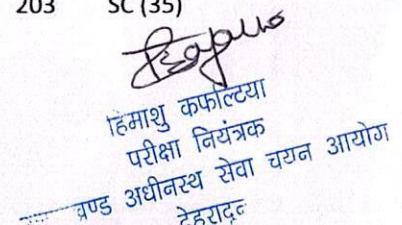 203 SC (35)
हिमांशु कफल्टिया
परीक्षा नियंत्रक
खण्ड अधीनस्थ सेवा चयन आयोग
देहरादून